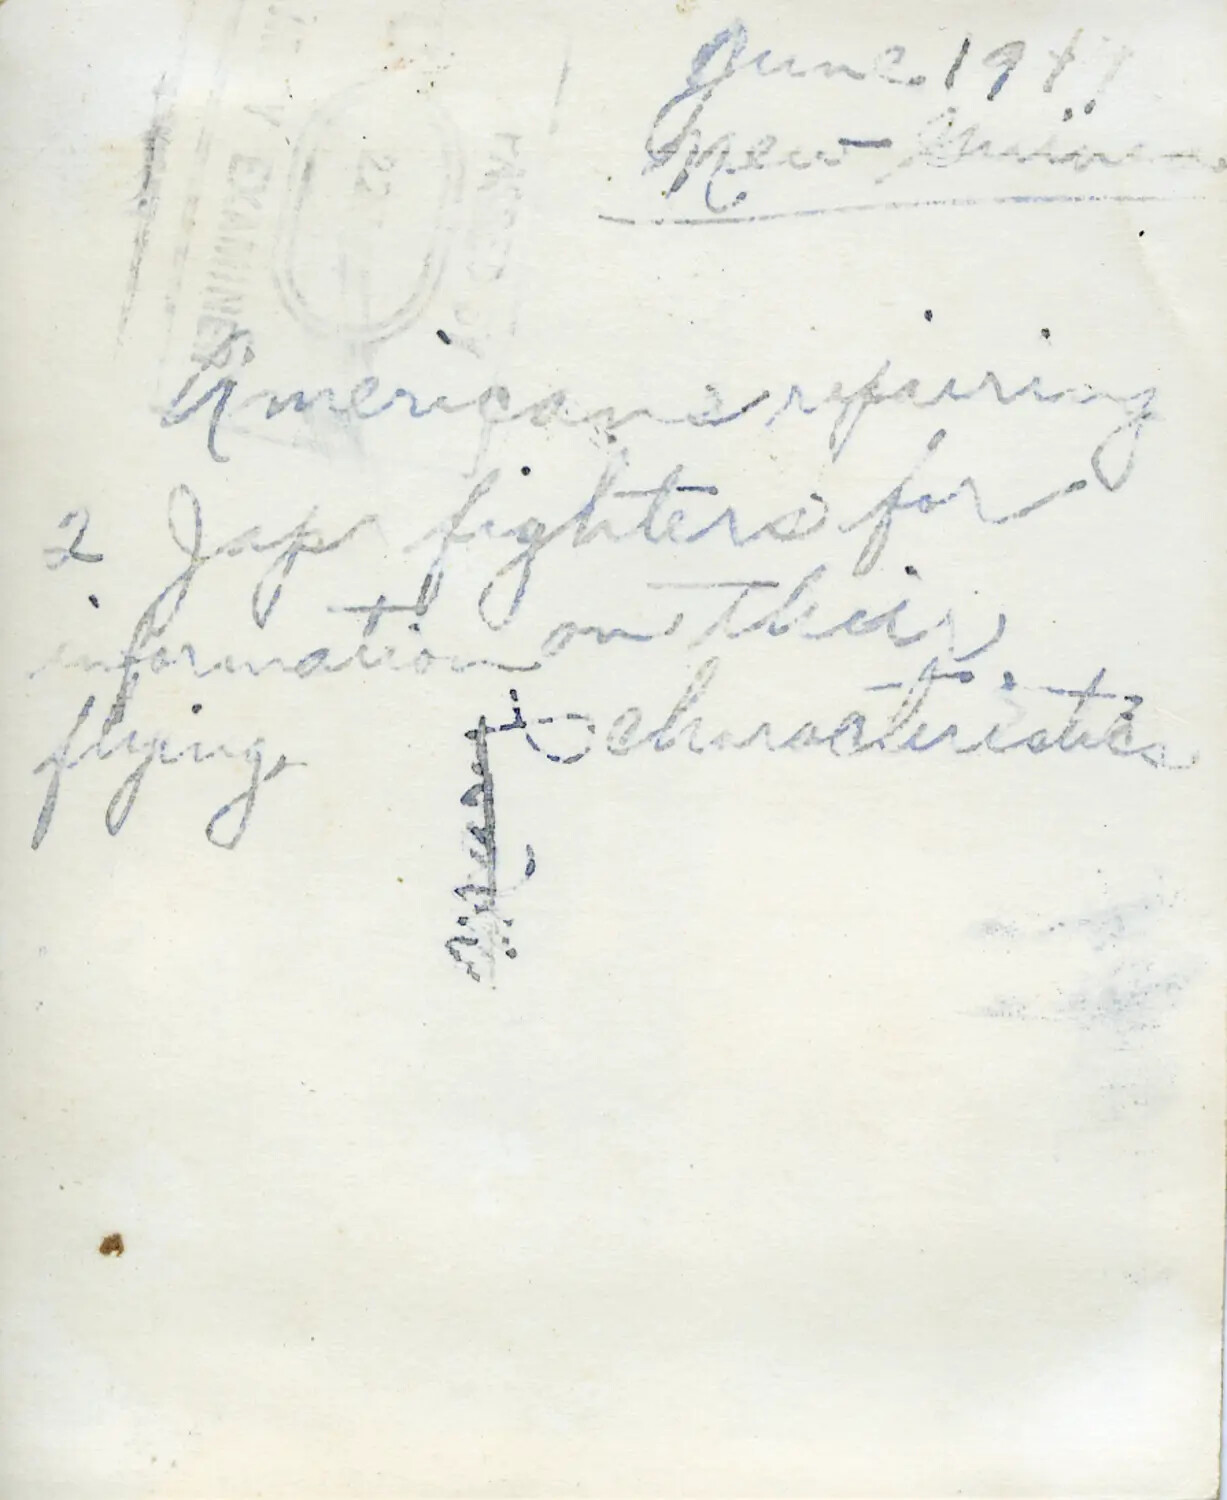 June 194
New Guinea
Americans repairing
2 Jap fighters for
information on their
flying characteristics
PASSED BY
22
Y EXAMINER